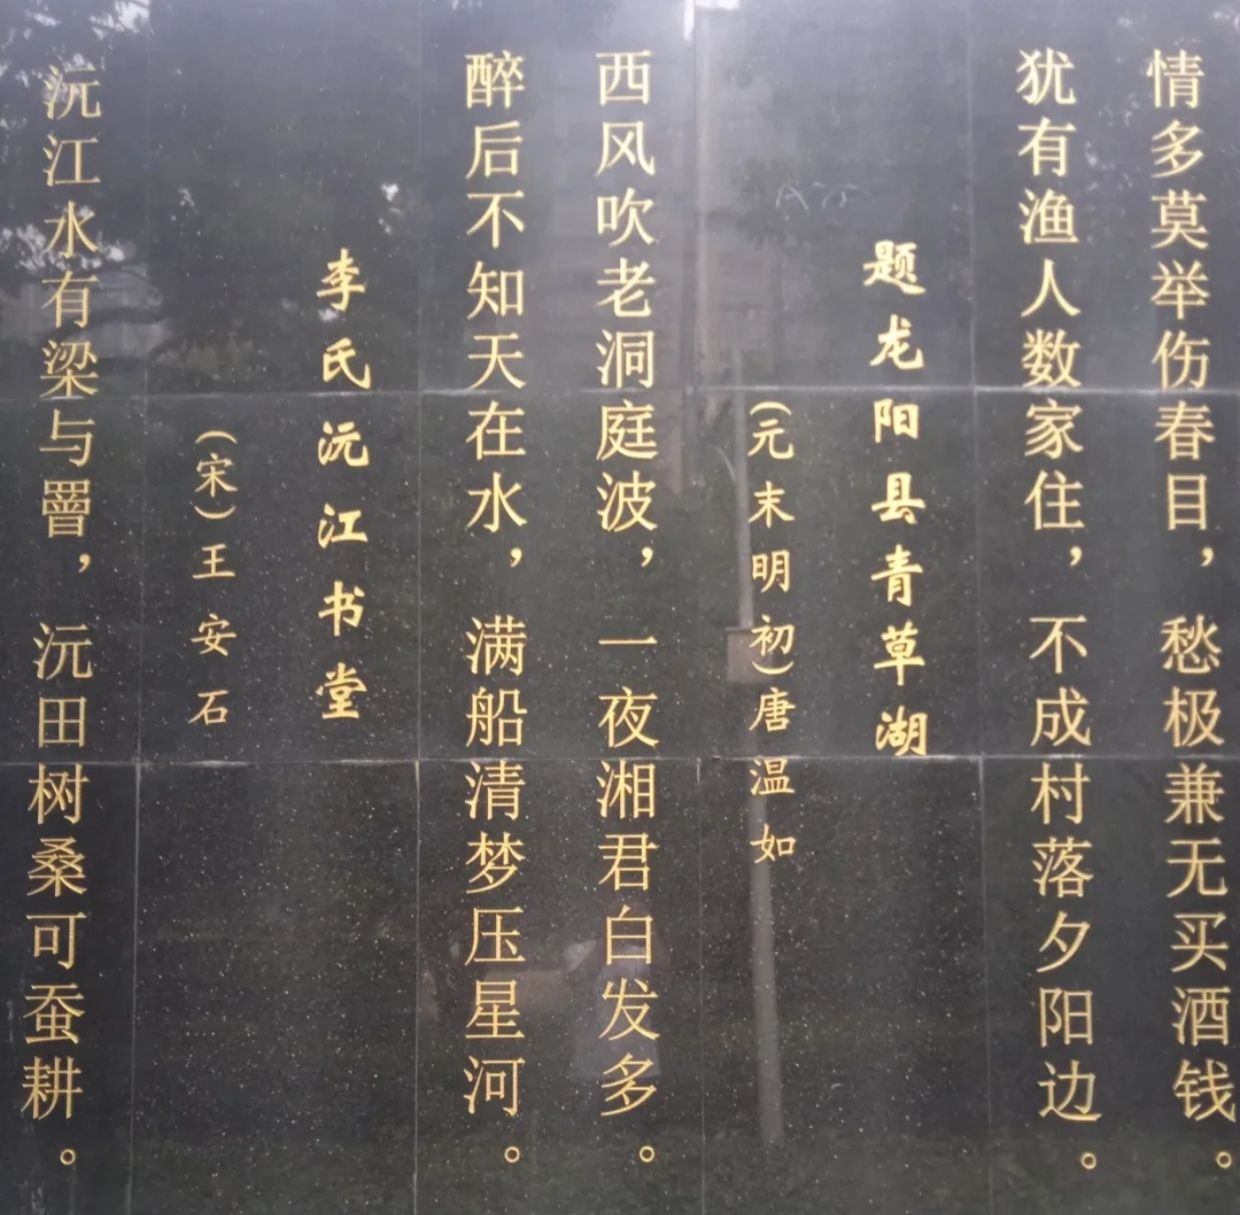 情多莫举伤春目，愁极兼无买酒钱。
犹有渔人数家住，不成村落夕阳边。
题龙阳县青草湖
（元末明初）唐温如
西风吹老洞庭波，一夜湘君白发多。
醉后不知天在水，满船清梦压星河。
李氏沅江书堂
（宋）王安石
沅江水有梁与罾，沅田树桑可蚕耕。